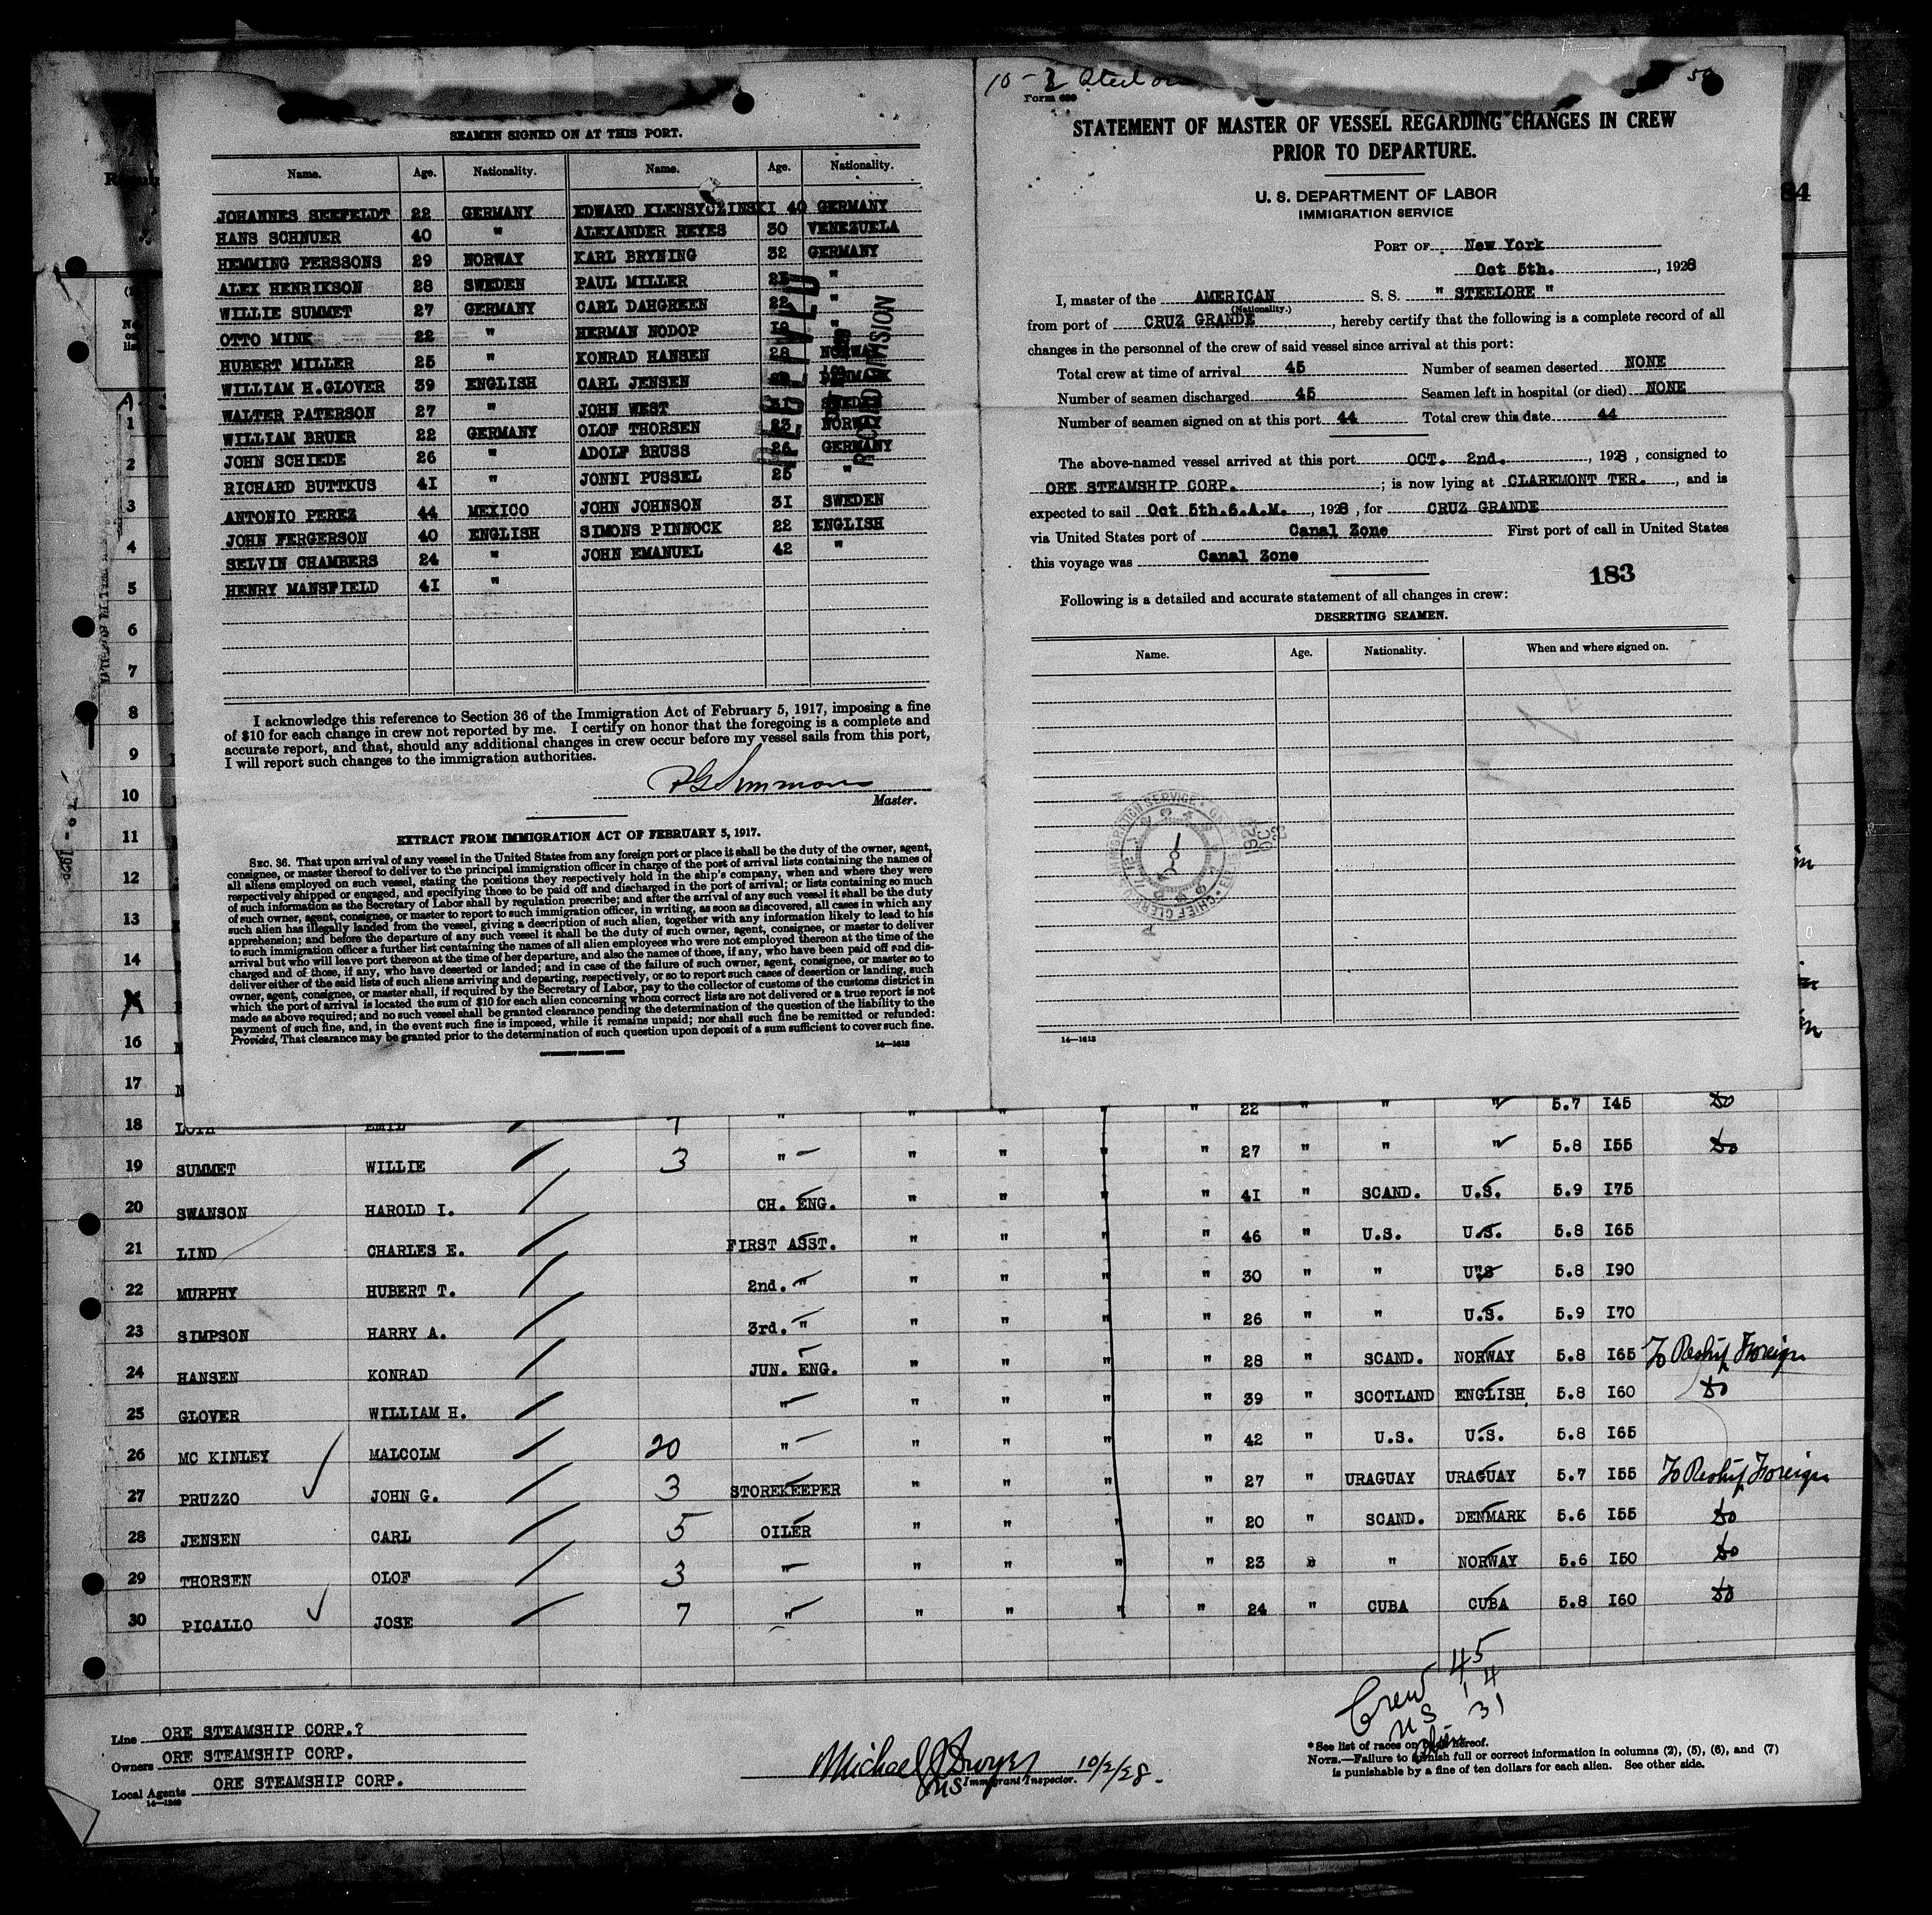 SEAMEN SIGNED ON AT THIS PORT.
Name. Age. Nationality. Name. Age. Nationality.
JOHANNES SEEFELDT 22 GERMANY EDWARD KLENSYCZINSKI 40 GERMANY
HANS SCHNUER 40 " ALEXANDER REYES 30 VENEZUELA
HEMMING PERSSONS 29 NORWAY KARL BRYNING 32 GERMANY
ALEX HENRIKSON 28 SWEDEN PAUL MILLER "
WILLIE SUMMET 27 GERMANY CARL DAHGREEN 22 "
OTTO MINK 22 " HERMAN NODOP "
HUBERT MILLER 25 " KONRAD HANSEN 28 NORWAY
WILLIAM H.GLOVER 39 ENGLISH CARL JENSEN DENMARK
WALTER PATERSON 27 " JOHN WEST 31 SWEDEN
WILLIAM BRUER 22 GERMANY OLOF THORSEN 23 NORWAY
JOHN SCHIEDE 26 " ADOLF BRUSS 26 GERMANY
RICHARD BUTTKUS 41 " JONNI PUSSEL 25 "
ANTONIO PEREZ 44 MEXICO JOHN JOHNSON 31 SWEDEN
JOHN FERGERSON 40 ENGLISH SIMONS PINNOCK 22 ENGLISH
SELVIN CHAMBERS 24 " JOHN EMANUEL 42 "
HENRY MANSFIELD 41 "
I acknowledge this reference to Section 36 of the Immigration Act of February 5, 1917, imposing a fine
of $10 for each change in crew not reported by me. I certify on honor that the foregoing is a complete and
accurate report, and that, should any additional changes in crew occur before my vessel sails from this port,
I will report such changes to the immigration authorities.
Simmons
Master.
EXTRACT FROM IMMIGRATION ACT OF FEBRUARY 5, 1917.
SEC. 36. That upon arrival of any vessel in the United States from any foreign port or place it shall be the duty of the owner, agent,
consignee, or master thereof to deliver to the principal immigration officer in charge of the port of arrival lists containing the names of
all aliens employed on such vessel, stating the positions they respectively hold in the ship's company, when and where they were
respectively shipped or engaged, and specifying those to be paid off and discharged in the port of arrival; or lists containing so much
of such information as the Secretary of Labor shall by regulation prescribe; and after the arrival of any such vessel it shall be the duty
of such owner, agent, consignee, or master to report to such immigration officer, in writing, as soon as discovered, all cases in which any
such alien has illegally landed from the vessel, giving a description of such alien, together with any information likely to lead to his
apprehension; and before the departure of any such vessel it shall be the duty of such owner, agent, consignee, or master to deliver
to such immigration officer a further list containing the names of all alien employees who were not employed thereon at the time of the
arrival but who will leave port thereon at the time of her departure, and also the names of those, if any, who have been paid off and dis-
charged and of those, if any, who have deserted or landed; and in case of the failure of such owner, agent, consignee, or master so to
deliver either of the said lists of such aliens arriving and departing, respectively, or so to report such cases of desertion or landing, such
owner, agent, consignee, or master shall, if required by the Secretary of Labor, pay to the collector of customs of the customs district in
which the port of arrival is located the sum of $10 for each alien concerning whom correct lists are not delivered or a true report is not
made as above required; and no such vessel shall be granted clearance pending the determination of the question of the liability to the
payment of such fine, and, in the event such fine is imposed, while it remains unpaid; nor shall such fine be remitted or refunded:
Provided, That clearance may be granted prior to the determination of such question upon deposit of a sum sufficient to cover such fine.
14—1613
10-2
Form
STATEMENT OF MASTER OF VESSEL REGARDING CHANGES IN CREW
PRIOR TO DEPARTURE.
U. S. DEPARTMENT OF LABOR
IMMIGRATION SERVICE
84
PORT OF New York
Oct 5th. , 1928
I, master of the AMERICAN S. S. " STEELORE "
(Nationality.)
from port of CRUZ GRANDE , hereby certify that the following is a complete record of all
changes in the personnel of the crew of said vessel since arrival at this port:
Total crew at time of arrival 45 Number of seamen deserted NONE
Number of seamen discharged 45 Seamen left in hospital (or died) NONE
Number of seamen signed on at this port 44 Total crew this date 44
The above-named vessel arrived at this port OCT. 2nd. , 1928 , consigned to
ORE STEAMSHIP CORP. ; is now lying at CLAREMONT TER. , and is
expected to sail Oct 5th.6.A.M. , 1928 , for CRUZ GRANDE
via United States port of Canal Zone First port of call in United States
this voyage was Canal Zone
183
Following is a detailed and accurate statement of all changes in crew:
DESERTING SEAMEN.
Name. Age. Nationality. When and where signed on.
14—1613
1
2
3
4
5
6
7
8
9
10
11
12
13
14
16
17
18 EMIL " " " " " 22 " " " 5.7 145 do
19 SUMMET WILLIE 3 " " " " " 27 " " " 5.8 155 do
20 SWANSON HAROLD I. CH. ENG. " " " 41 " SCAND. U.S. 5.9 175
21 LIND CHARLES E. FIRST ASST. " " " " 46 " U.S. U.S. 5.8 165
22 MURPHY HUBERT T. 2nd. " " " " " 30 " " U.S 5.8 190
23 SIMPSON HARRY A. 3rd. " " " " " 26 " " U.S. 5.9 170
24 HANSEN KONRAD JUN. ENG. " " " " 28 " SCAND. NORWAY 5.8 165 To Reship Foreign
25 GLOVER WILLIAM H. " " " " " 39 " SCOTLAND ENGLISH 5.8 160 do
26 MC KINLEY MALCOLM 20 " " " " " 42 " U.S. U.S. 5.8 165
27 PRUZZO JOHN G. 3 STOREKEEPER " " " " 27 " URAGUAY URAGUAY 5.7 155 To Reship Foreign
28 JENSEN CARL 5 OILER " " " " 20 " SCAND. DENMARK 5.6 155 do
29 THORSEN OLOF 3 " " " " " 23 " " NORWAY 5.6 150 do
30 PICALLO JOSE 7 " " " " " 24 " CUBA CUBA 5.8 160 do
Crew 45
US 14
31
Line ORE STEAMSHIP CORP.?
Owners ORE STEAMSHIP CORP.
Local Agents ORE STEAMSHIP CORP.
14—1240
Michael J Dwyer 10/2/28.
Immigrant Inspector.
* See list of races on hereof.
NOTE.—Failure to furnish full or correct information in columns (2), (5), (6), and (7)
is punishable by a fine of ten dollars for each alien. See other side.